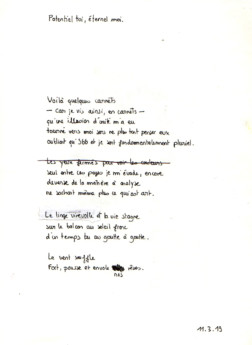 Potentiel toi, éternel moi.
Voilà quelques carnets
— car je vis ainsi, en carnets —
qu'une illusion d'unité m'a eu
tourné vers moi sans ne plus tant penser aux
oubliant qu' et je suis fondamentalement pluriel.
Les yeux fermés pour voir les couleurs
seul entre ces pages je m'évade, encore
devenue de la matière à analyse
ne sachant même plus ce qui est art.
Le linge virevolte et la vie stagne
sur le balcon au soleil franc
d'un temps lu au goutte à goutte.
Le vent souffle
Fort, pousse et envole rêves.
nos
11.3.19